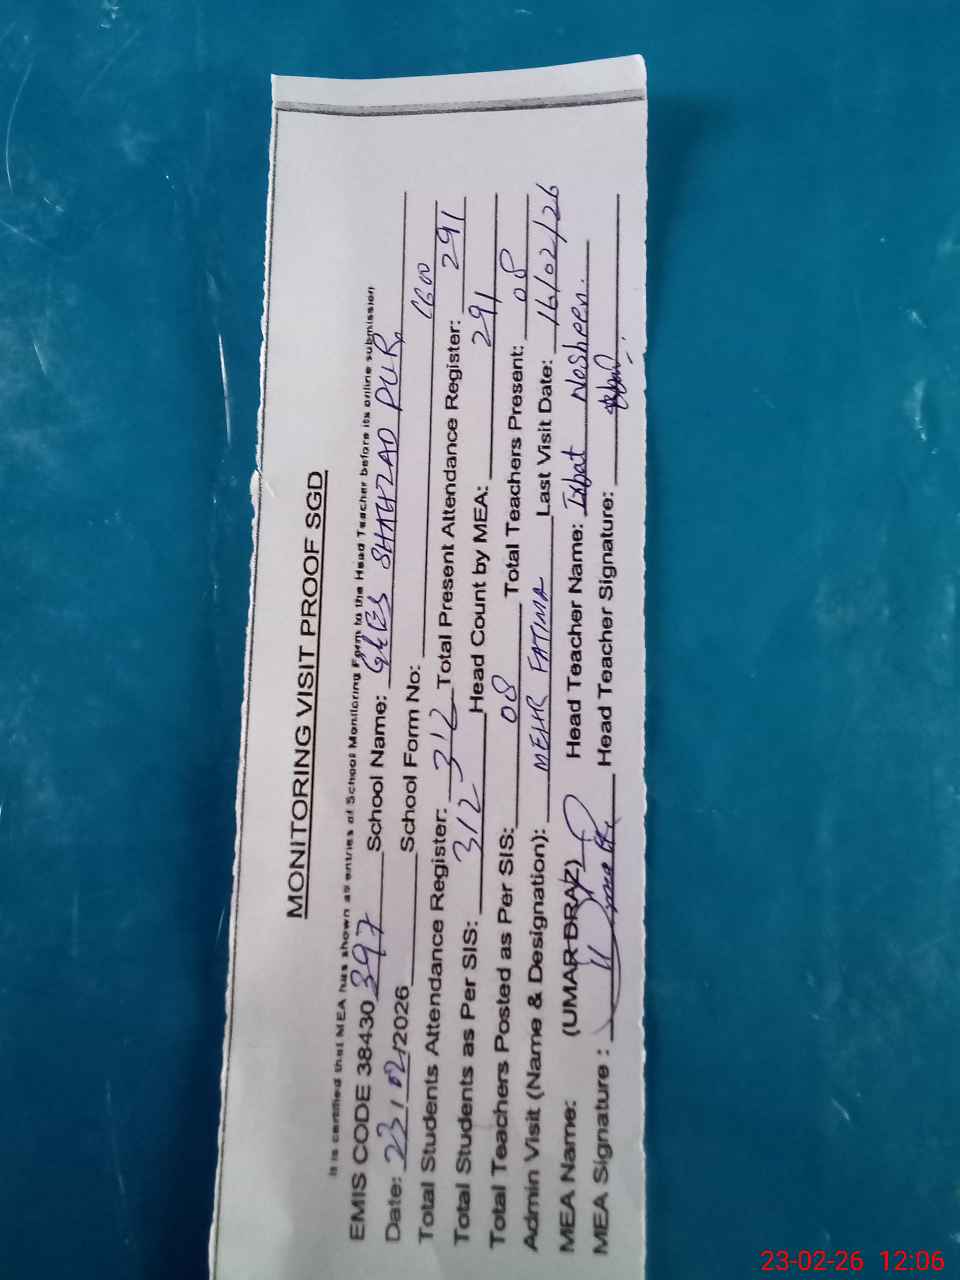 MONITORING VISIT PROOF SGD
It is certified that MEA has shown all entries of School Monitoring Form to the Head Teacher before its online submission
EMIS CODE 38430397 School Name: GGES SHAHZAD PUR
Date: 23/02/2026 School Form No:
Total Students Attendance Register: 312 Total Present Attendance Register: 291
Total Students as Per SIS: 312 Head Count by MEA: 291
Total Teachers Posted as Per SIS: 08 Total Teachers Present: 08
Admin Visit (Name & Designation): MEHR FATIMA Last Visit Date: 16/02/26
MEA Name: (UMAR DRAZ) Head Teacher Name: Nosheen
MEA Signature : Head Teacher Signature:
23-02-26 12:06